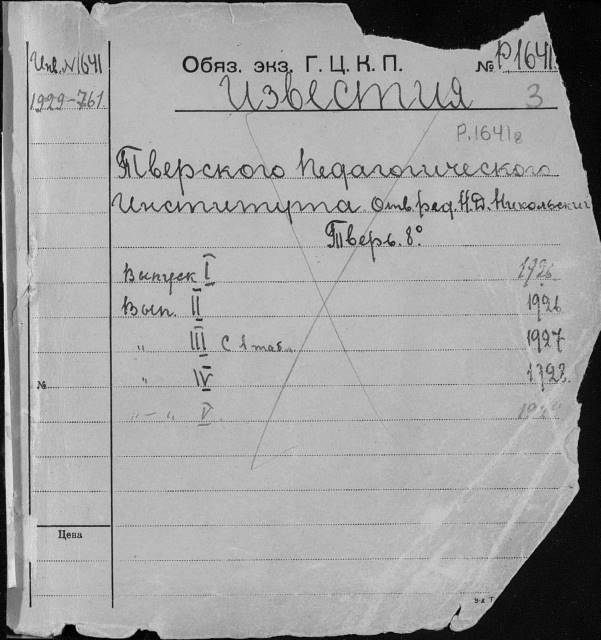 Инв. N 1641
Обяз. экз. Г. Ц. К. П.
№ Р1641
1929-761
Известия
3
Р.1641г
Тверского Педагогического
Института. Отв. ред. Н.Д. Никольский
Тверь. 8°
Выпуск I 1926.
Вып. II 1926
„ III с 1 табл. 1927
№ „ IV 1928.
„ – „ V.
Цена